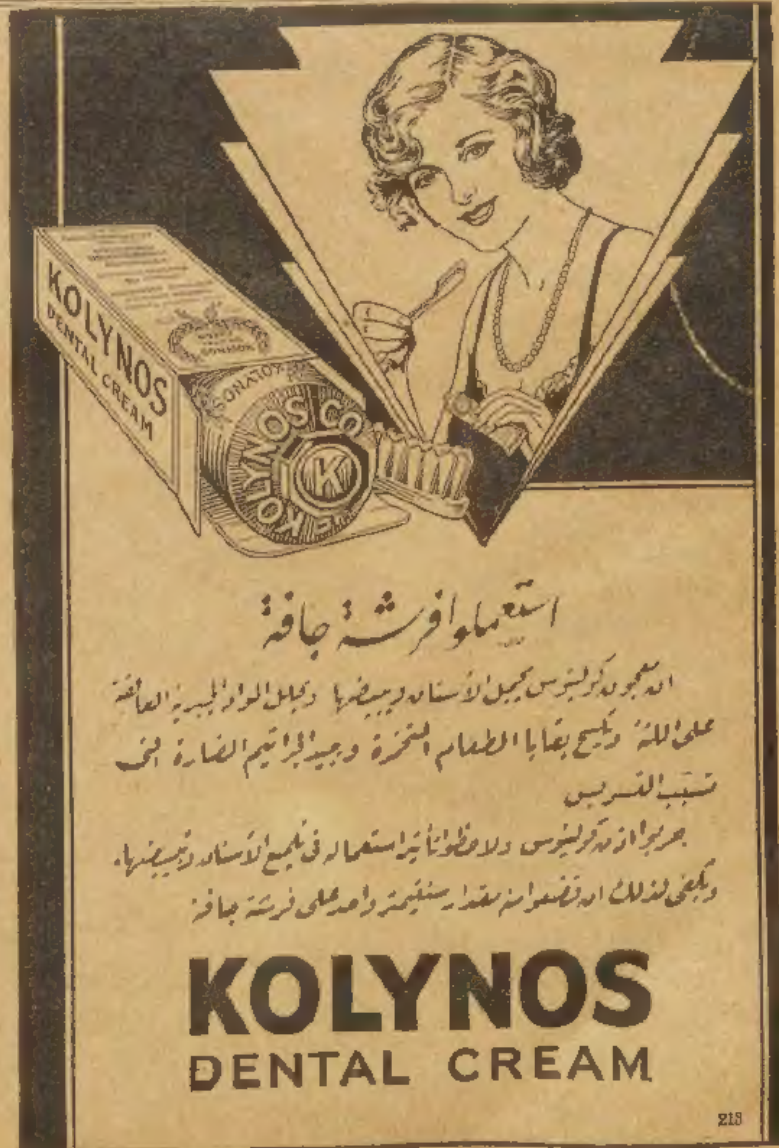 KOLYNOS
DENTAL CREAM
KOLYNOS
KOLYNOS CO
K
استعملوا فرشة جافة
ان معجون كولينوس يجمل الأسنان ويبيضها ويحلل المواد الجيرية العالقة
على اللثة ويكسح بقايا الطعام المتخمرة ويبيد الجراثيم الضارة التى
تسبب التسويس
جربوا اذن كولينوس ولاحظوا تأثير استعماله فى تلميع الأسنان وتبييضها،
ويكفى لذلك ان تضعوا منه مقدار سنتيمتر واحد على فرشة جافة
KOLYNOS
DENTAL CREAM
213